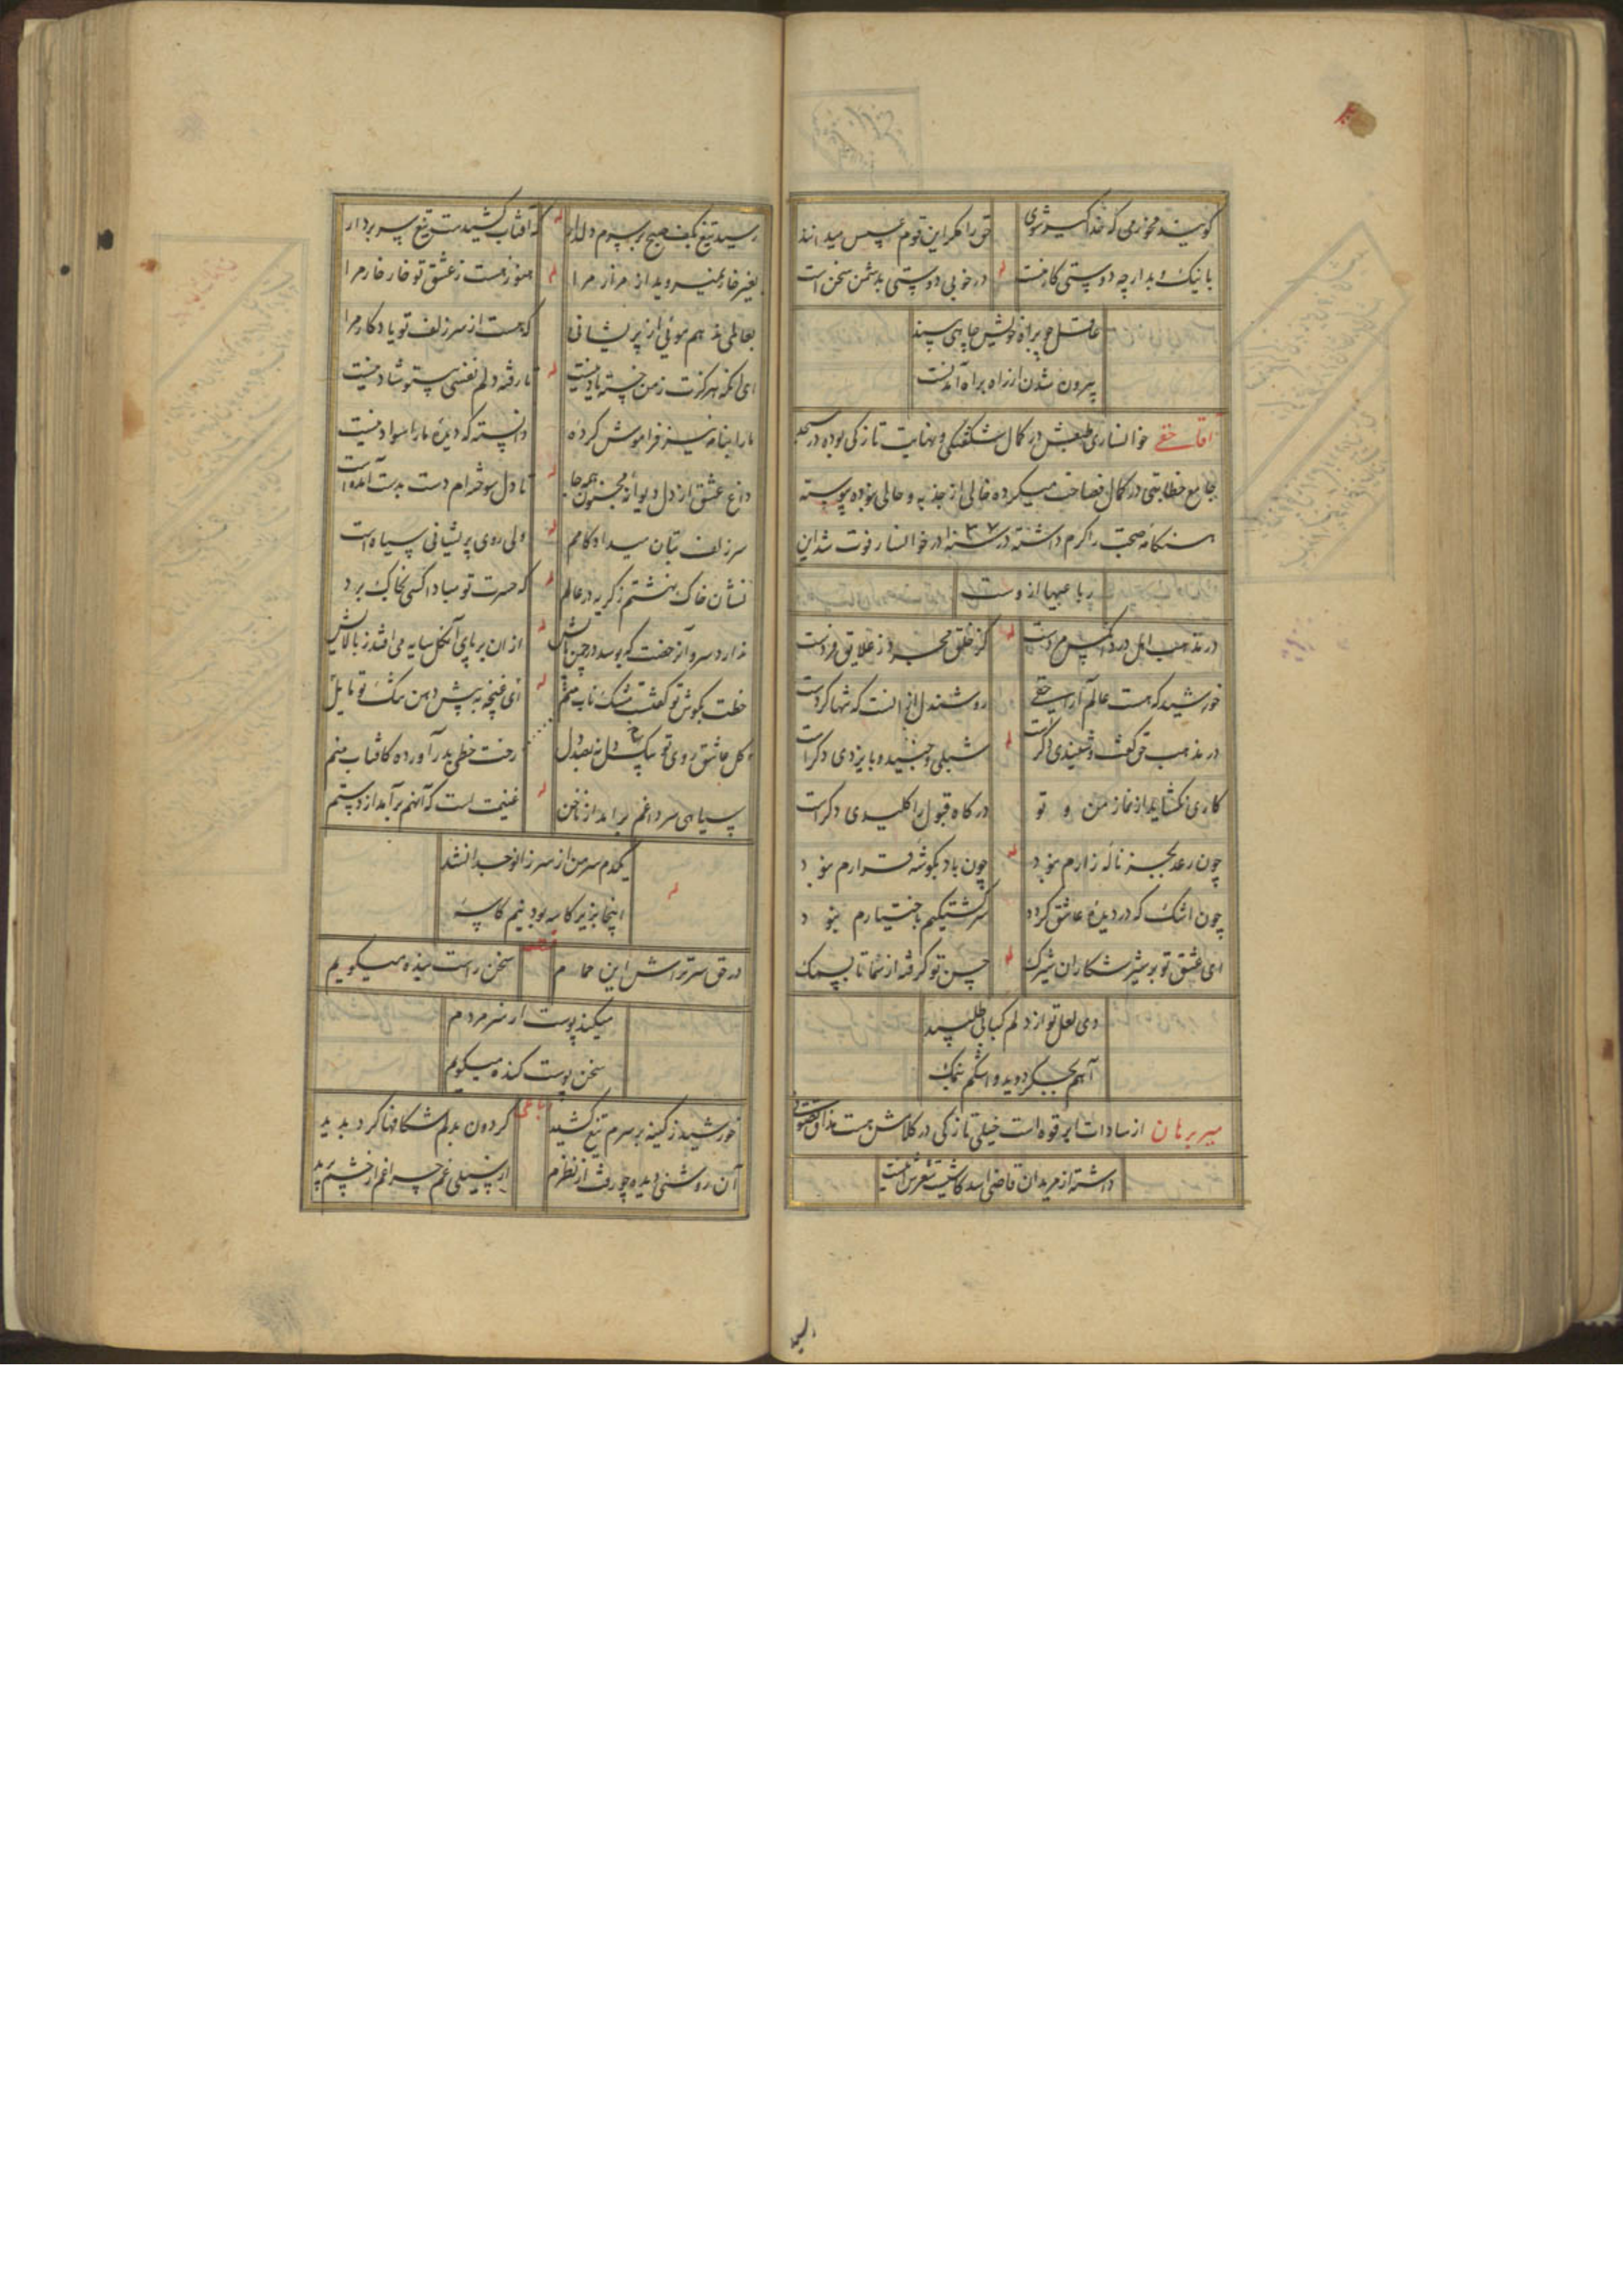 گویند مخور می که خدا گیر شوی
حق را مگر این قوم عسس میدانند
با نیک و بد ار چه دوستی کار منست
له
در خوبی دوستی بدشمن سخن است
عاقل چو براه خویش چاهی بیند
بیرون شدن از راه براه آمدنست
آقا حقی خوانساری طبعش در کمال شگفتگی و نهایت تازگی بوده در مسجد
جامع خطابتی در کمال فصاحت میکرده خالی از جذبه و حالی نبوده پیوسته
هنگامه صحبت را گرم داشته در سنه ۳۷ در خوانسار فوت شد این
رباعیها از وست
در مذهب اهل درد آنکس مردست
له
کز خلق مجرد ز علایق فردست
خورشید که هست عالم آرا حقی
روشندلی از آنست که تنها گردست
در مذهب حق کفش و نعلبندی دگرست
له
شبلی و جنید و بایزیدی دگرست
کاری نگشاید از نماز من و تو
درگاه قبول را کلیدی دگرست
چون رعد بجز ناله زارم نبود
له
چون باد بگوشه قرارم نبود
چون اشک که در دیده عاشق گردد
سرگشتگیم باختیارم نبود
ای عشق تو بر شیر شکاران شیرک
له
حسن تو گرفته از سما تا بسمک
دی لعل تو از دلم کبابی طلبید
آهم بجگر دوید و اشکم بنمک
میر برهان از سادات ابرقوه است خیلی تازگی در کلامش هست مذاق تصوف
داشته از مریدان قاضی اسد کاشیست شعرش اینست
رسید تیغ بکف صبح بر سرم دلدار
له
که آفتاب کشیدست تیغ بر سر دار
بغیر خار نمیروید از مزار مرا
له
هنوز هست ز عشق تو خار خار مرا
بعالمی ندهم موئی از پریشانی
که هست از سر زلف تو یادگار مرا
ای آنکه هرگزت ز من خسته یاد نیست
له
تا رفته دلم نفسی بیتو شاد نیست
ما را بنامه نیز فراموش کرده
دانسته که دیده ما را سواد نیست
داغ عشق از دل دیوانه مجنون همه جا
له
تا دل سوخته‌ام دست بدست آمده است
سر زلف بتان میداد کامم
له
ولی روی پریشانی سیاه است
نشان خاک نهشتم ز گریه در عالم
له
که حسرت تو مبادا کسی بخاک برد
ندارد سرو آن رخصت که بوسد در چمن پایش
له
از آن بر پای آن گل سایه می افتد ز بالایش
خطت بگوش تو گفت مشک ناب منم
له
ای غنچه به پیش دهن تنگ تو مایل
گل عاشق روی تو بیک دل نه بصد دل
رخت خطی بدر آورده کافتاب منم
سیاهی سر داغم برآمد از ناخن
له
غنیمت است که آنهم برآمد از دستم
یکدم سر من از سر زانو جدا نشد
له
اینجا بزیر کاسه بود نیم کاسه
در حق سرتراش این حمام
قطعه
سخن راست بنده میگویم
میکند پوست از سر مردم
سخن پوست کنده میگویم
خورشید ز کینه بر سرم تیغ کشید
رباعی
گردون بدلم شکافها کرد پدید
آن روشنی دیده چو رفت از نظرم
از سیلی غم چراغم از چشم پرید